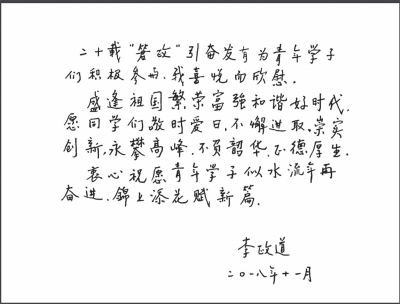 二十载“箬政”引奋发有为青年学子
们积极参与，我喜悦而欣慰。
盛逢祖国繁荣富强和谐好时代，
愿同学们敬时爱日，不懈进取。崇实
创新，永攀高峰，不负韶华，正德厚生。
衷心祝愿青年学子似水流年再
奋进，锦上添花赋新篇。
李政道
二〇一八年十一月